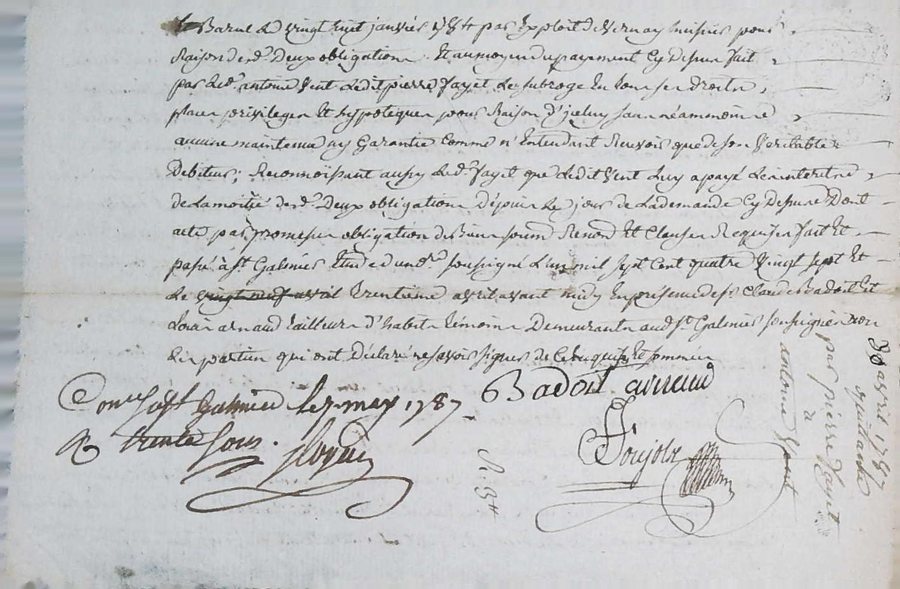 Baral le d. vingt huit janvier 1784 par exploit de Vernay huissier pour
Raison des d. Deux obligations Et au moyen du payement Cy Dessus fait
par led. antoine Vent Ledit pierre fayet Le subroge En tous ses droits,
places privileges Et hypoteques pour Raison d'iceluy sans néammoins
aucune maintenue ny Garantie Comme n'Entendant Recevoir que de son Veritable
Debiteur; Reconnoissant aussy Led. fayet que Ledit Vent Luy a payé Les interets
de Lamoitié desd. Deux obligations Depuis Le jour de Lademande Cy Dessus Dont
acte par promesse obligation de Biens soum. Renon. Et Clauses Requises fait Et
passé à St. Galmier Etude du no.re soussigné L'an mil sept Cent quatre Vingt sept Et
Le vingt neuf avril trentieme avril avant midy En presence de sr Claude Badoit Et
Louis arnaud tailleur d'habits témoins Demeurants aud. St. Galmier soussignés non
Les parties qui ont Déclaré ne savoir signer de Ce Enquises Et sommées
Badoit arnaud
Con.lé à St Galmier le 7 may 1787
R trente sous.
30 avril 1787
quittance
par pierre fayet
a
antoine Vent